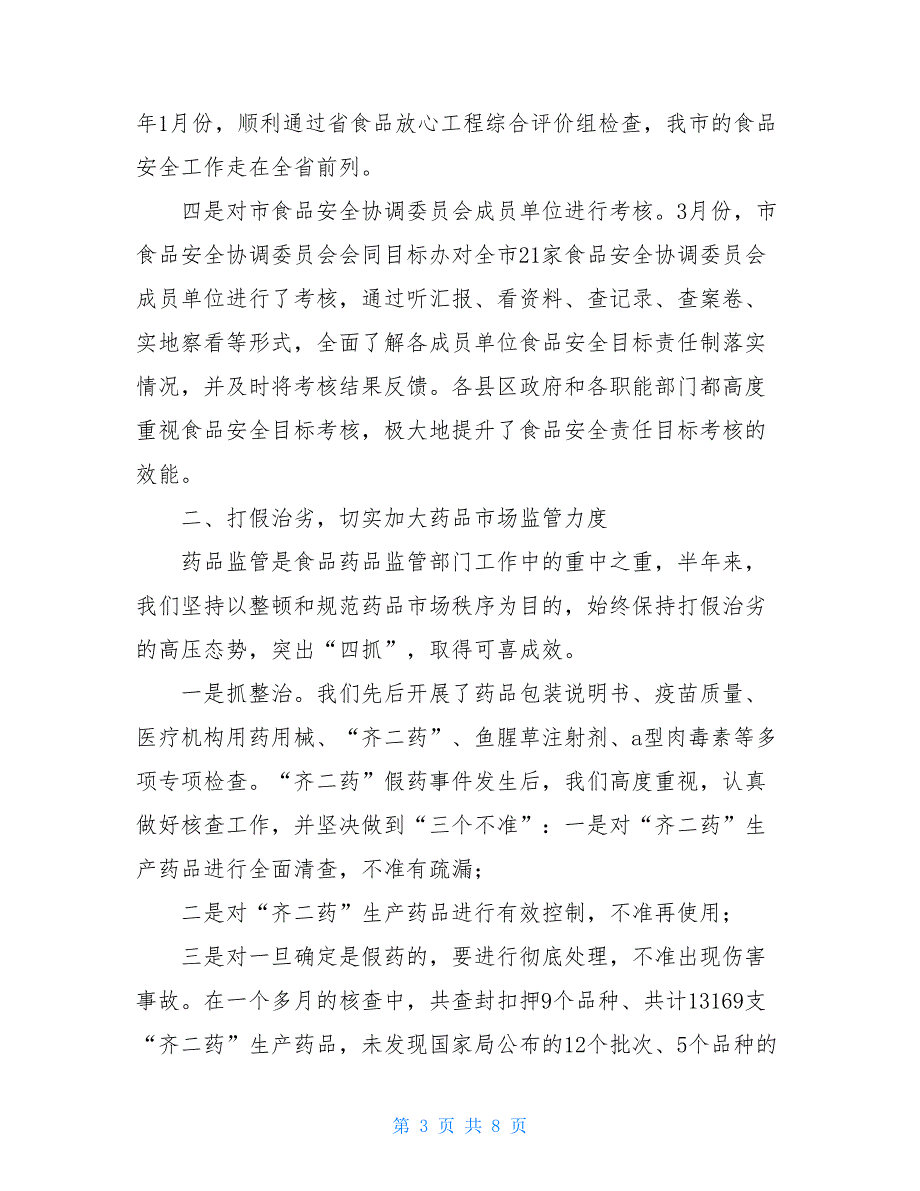 年1月份，顺利通过省食品放心工程综合评价组检查，我市的食品
安全工作走在全省前列。
四是对市食品安全协调委员会成员单位进行考核。3月份，市
食品安全协调委员会会同目标办对全市21家食品安全协调委员会
成员单位进行了考核，通过听汇报、看资料、查记录、查案卷、
实地察看等形式，全面了解各成员单位食品安全目标责任制落实
情况，并及时将考核结果反馈。各县区政府和各职能部门都高度
重视食品安全目标考核，极大地提升了食品安全责任目标考核的
效能。
二、打假治劣，切实加大药品市场监管力度
药品监管是食品药品监管部门工作中的重中之重，半年来，
我们坚持以整顿和规范药品市场秩序为目的，始终保持打假治劣
的高压态势，突出“四抓”，取得可喜成效。
一是抓整治。我们先后开展了药品包装说明书、疫苗质量、
医疗机构用药用械、“齐二药”、鱼腥草注射剂、a型肉毒素等多
项专项检查。“齐二药”假药事件发生后，我们高度重视，认真
做好核查工作，并坚决做到“三个不准”：一是对“齐二药”生
产药品进行全面清查，不准有疏漏；
二是对“齐二药”生产药品进行有效控制，不准再使用；
三是对一旦确定是假药的，要进行彻底处理，不准出现伤害
事故。在一个多月的核查中，共查封扣押9个品种、共计13169支
“齐二药”生产药品，未发现国家局公布的12个批次、5个品种的
第 3 页 共 8 页